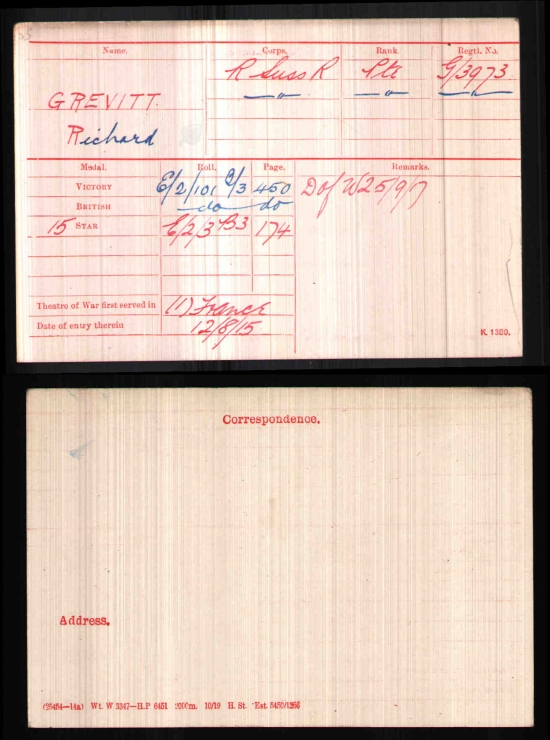 Name. Corps. Rank. Regtl. No.
R Suss R Pte G/3973
GREVITT. —"— —"— —"—
Richard
Medal. Roll. Page. Remarks.
VICTORY E/2/101 450 D of W 25/9/17
BRITISH do do
15 STAR E/2/3 B3 174
Theatre of War first served in (1) France
Date of entry therein 12/8/15
K. 1380.
Correspondence.
Address.
(26454—14a) Wt. W 3347—H.P 6451 10/19 H. St.